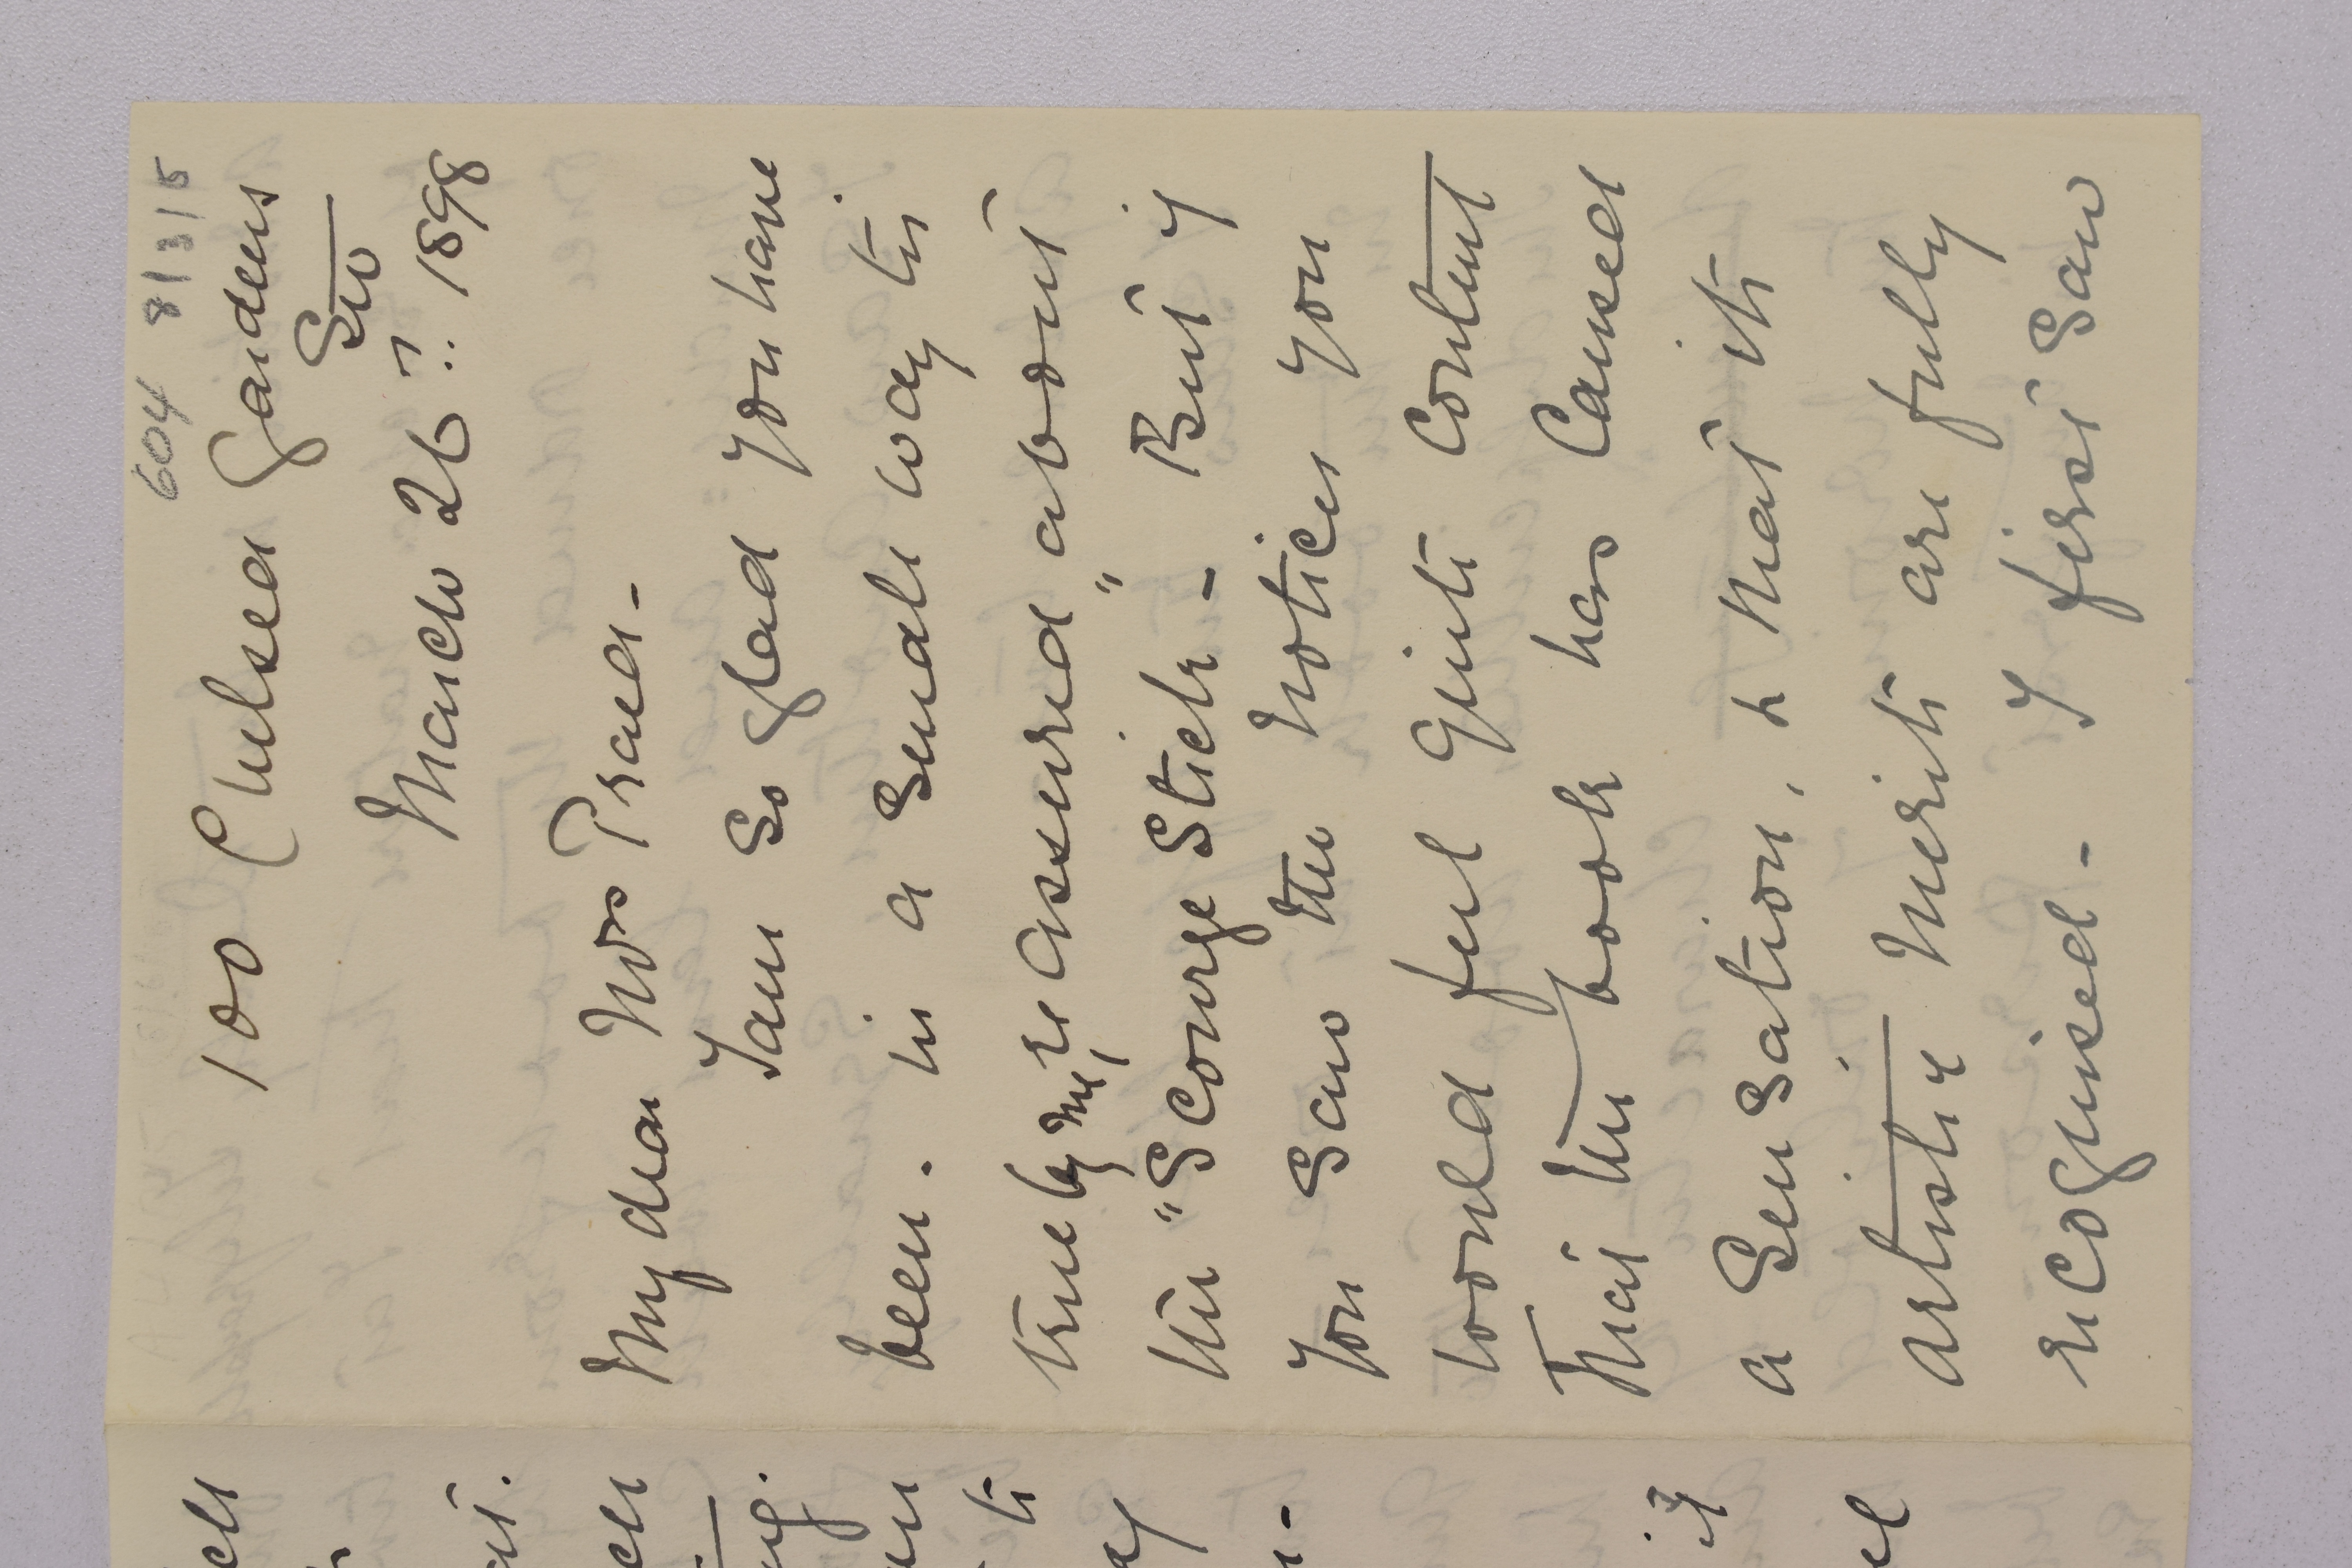 604 8/3/5
100 Chelsea Gardens
SW
March 26th 1898
My dear Mrs Praed -
I am so glad you have
been in a small way to
true by me, re assured "about
the "Scourge Stick - But if
you saw the notices you
would feel quite content
that the book has caused
a sensation, & that its
artistic merits are fully
recognised - I first saw